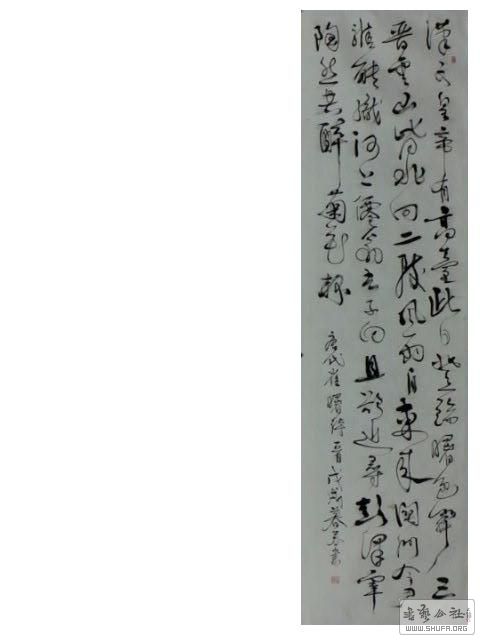 漢文皇帝有高臺此日登臨曙色開三
晋雲山皆北向二陵風雨自東來関門令尹
誰能識河上僊翁去不回且欲近尋彭澤宰
陶然共醉菊花杯
唐代崔曙詩一首戊戌暮春書
書藝公社
WWW.SHUFA.ORG